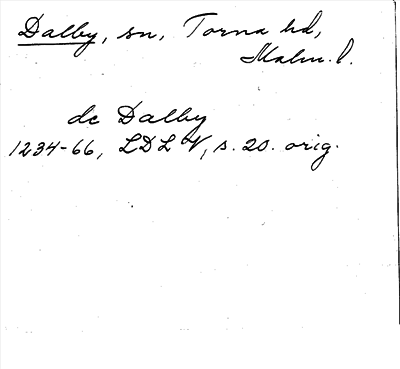 Dalby, sn, Torna hd,
Malm. l.
de Dalby
1234-66, LDL V, s. 20. orig.